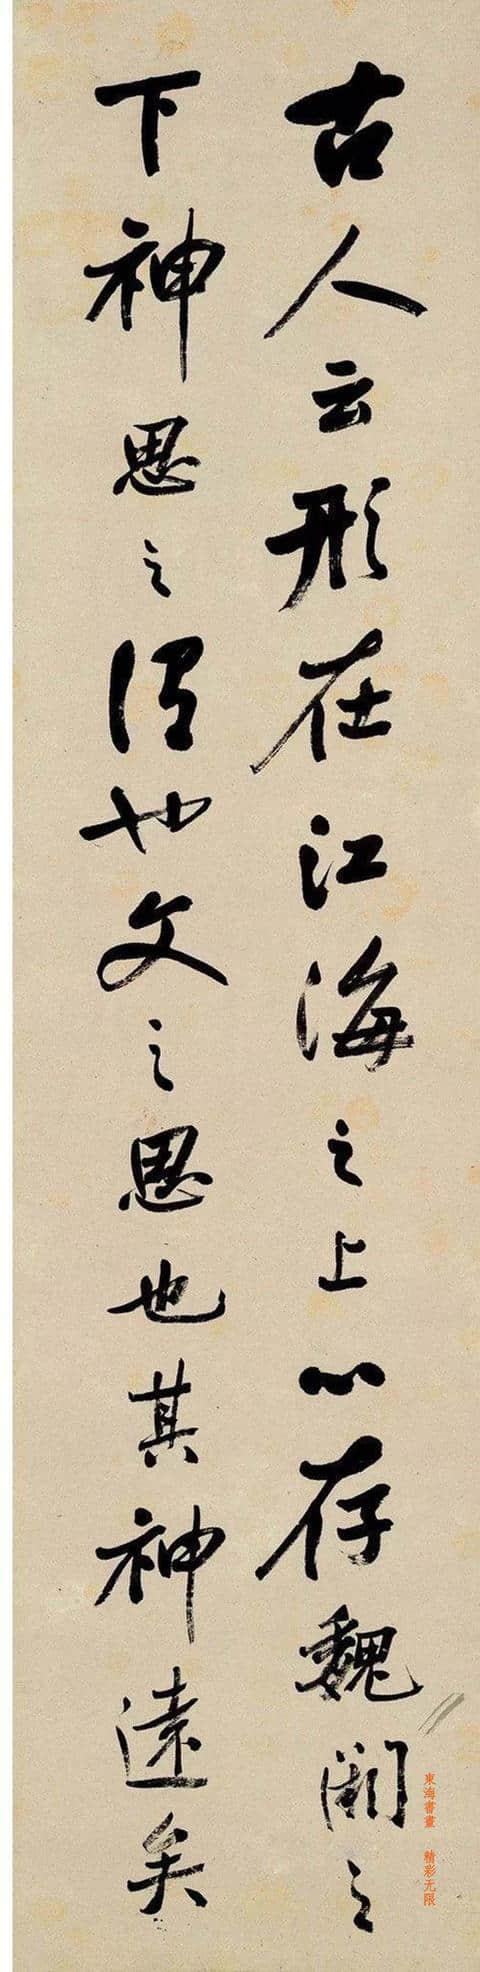 古人云形在江海之上心存魏闕之
下神思之謂也文之思也其神遠矣
東海書畫 精彩无限